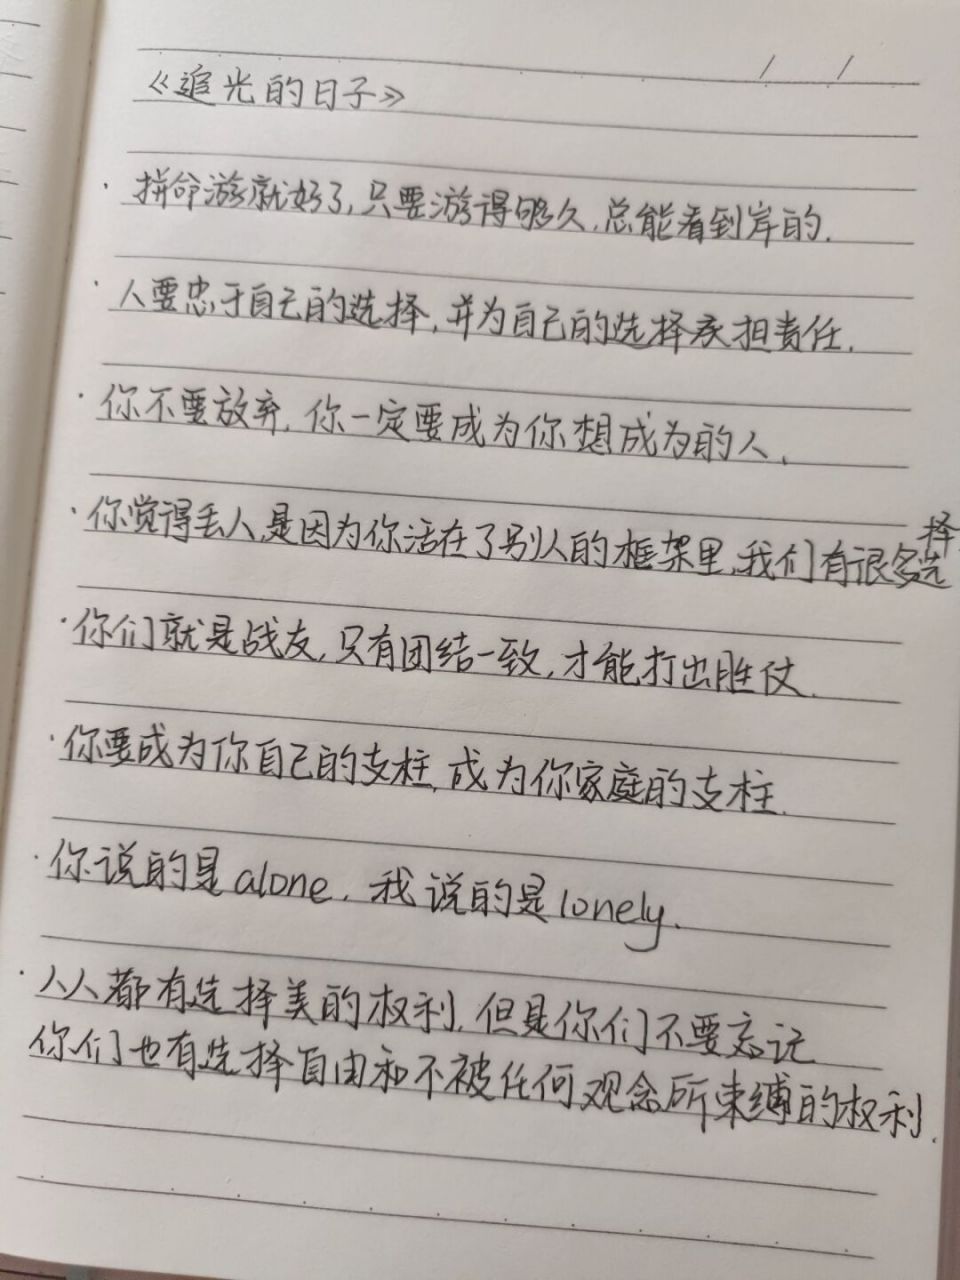 《追光的日子》
· 拼命游就好了,只要游得够久,总能看到岸的.
· 人要忠于自己的选择,并为自己的选择承担责任.
· 你不要放弃,你一定要成为你想成为的人.
· 你觉得丢人,是因为你活在了别人的框架里,我们有很多选择
· 你们就是战友,只有团结一致,才能打出胜仗.
· 你要成为你自己的支柱,成为你家庭的支柱.
· 你说的是alone,我说的是lonely.
· 人人都有选择美的权利,但是你们不要忘记
你们也有选择自由和不被任何观念所束缚的权利.